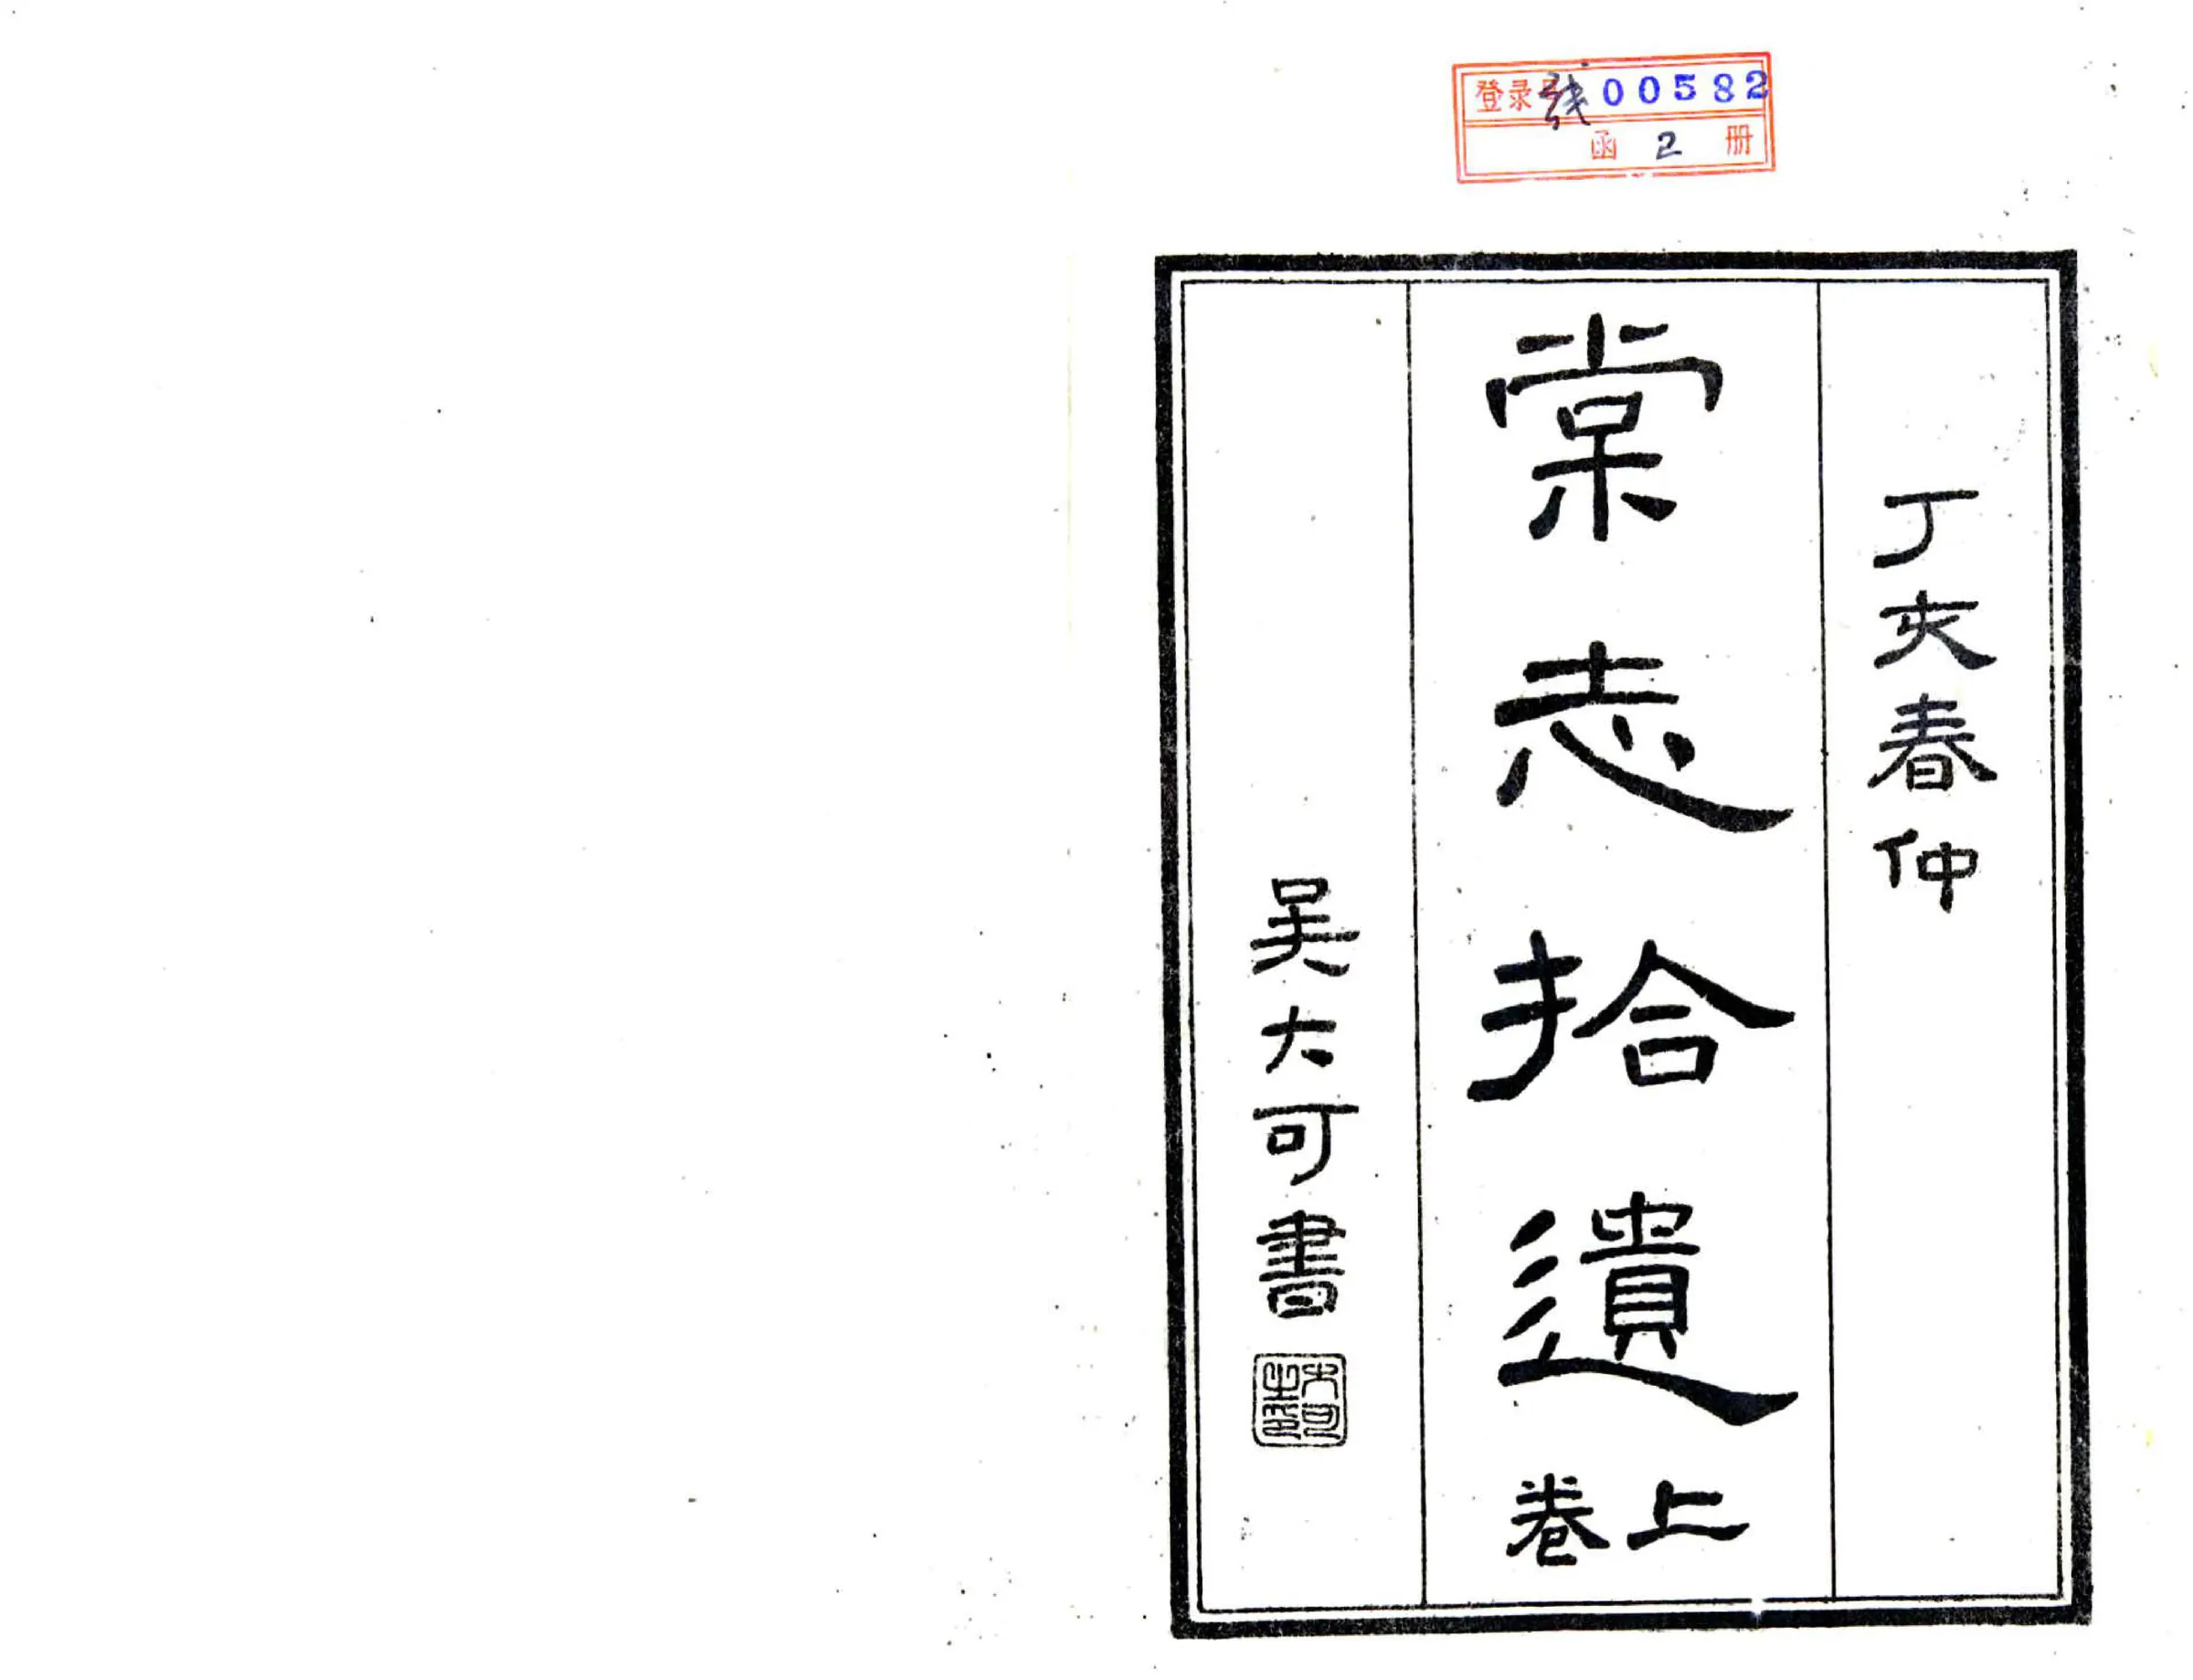 登录号 00582
函 2 册
丁亥春仲
棠志拾遺
上卷
吴大可書
大可之印